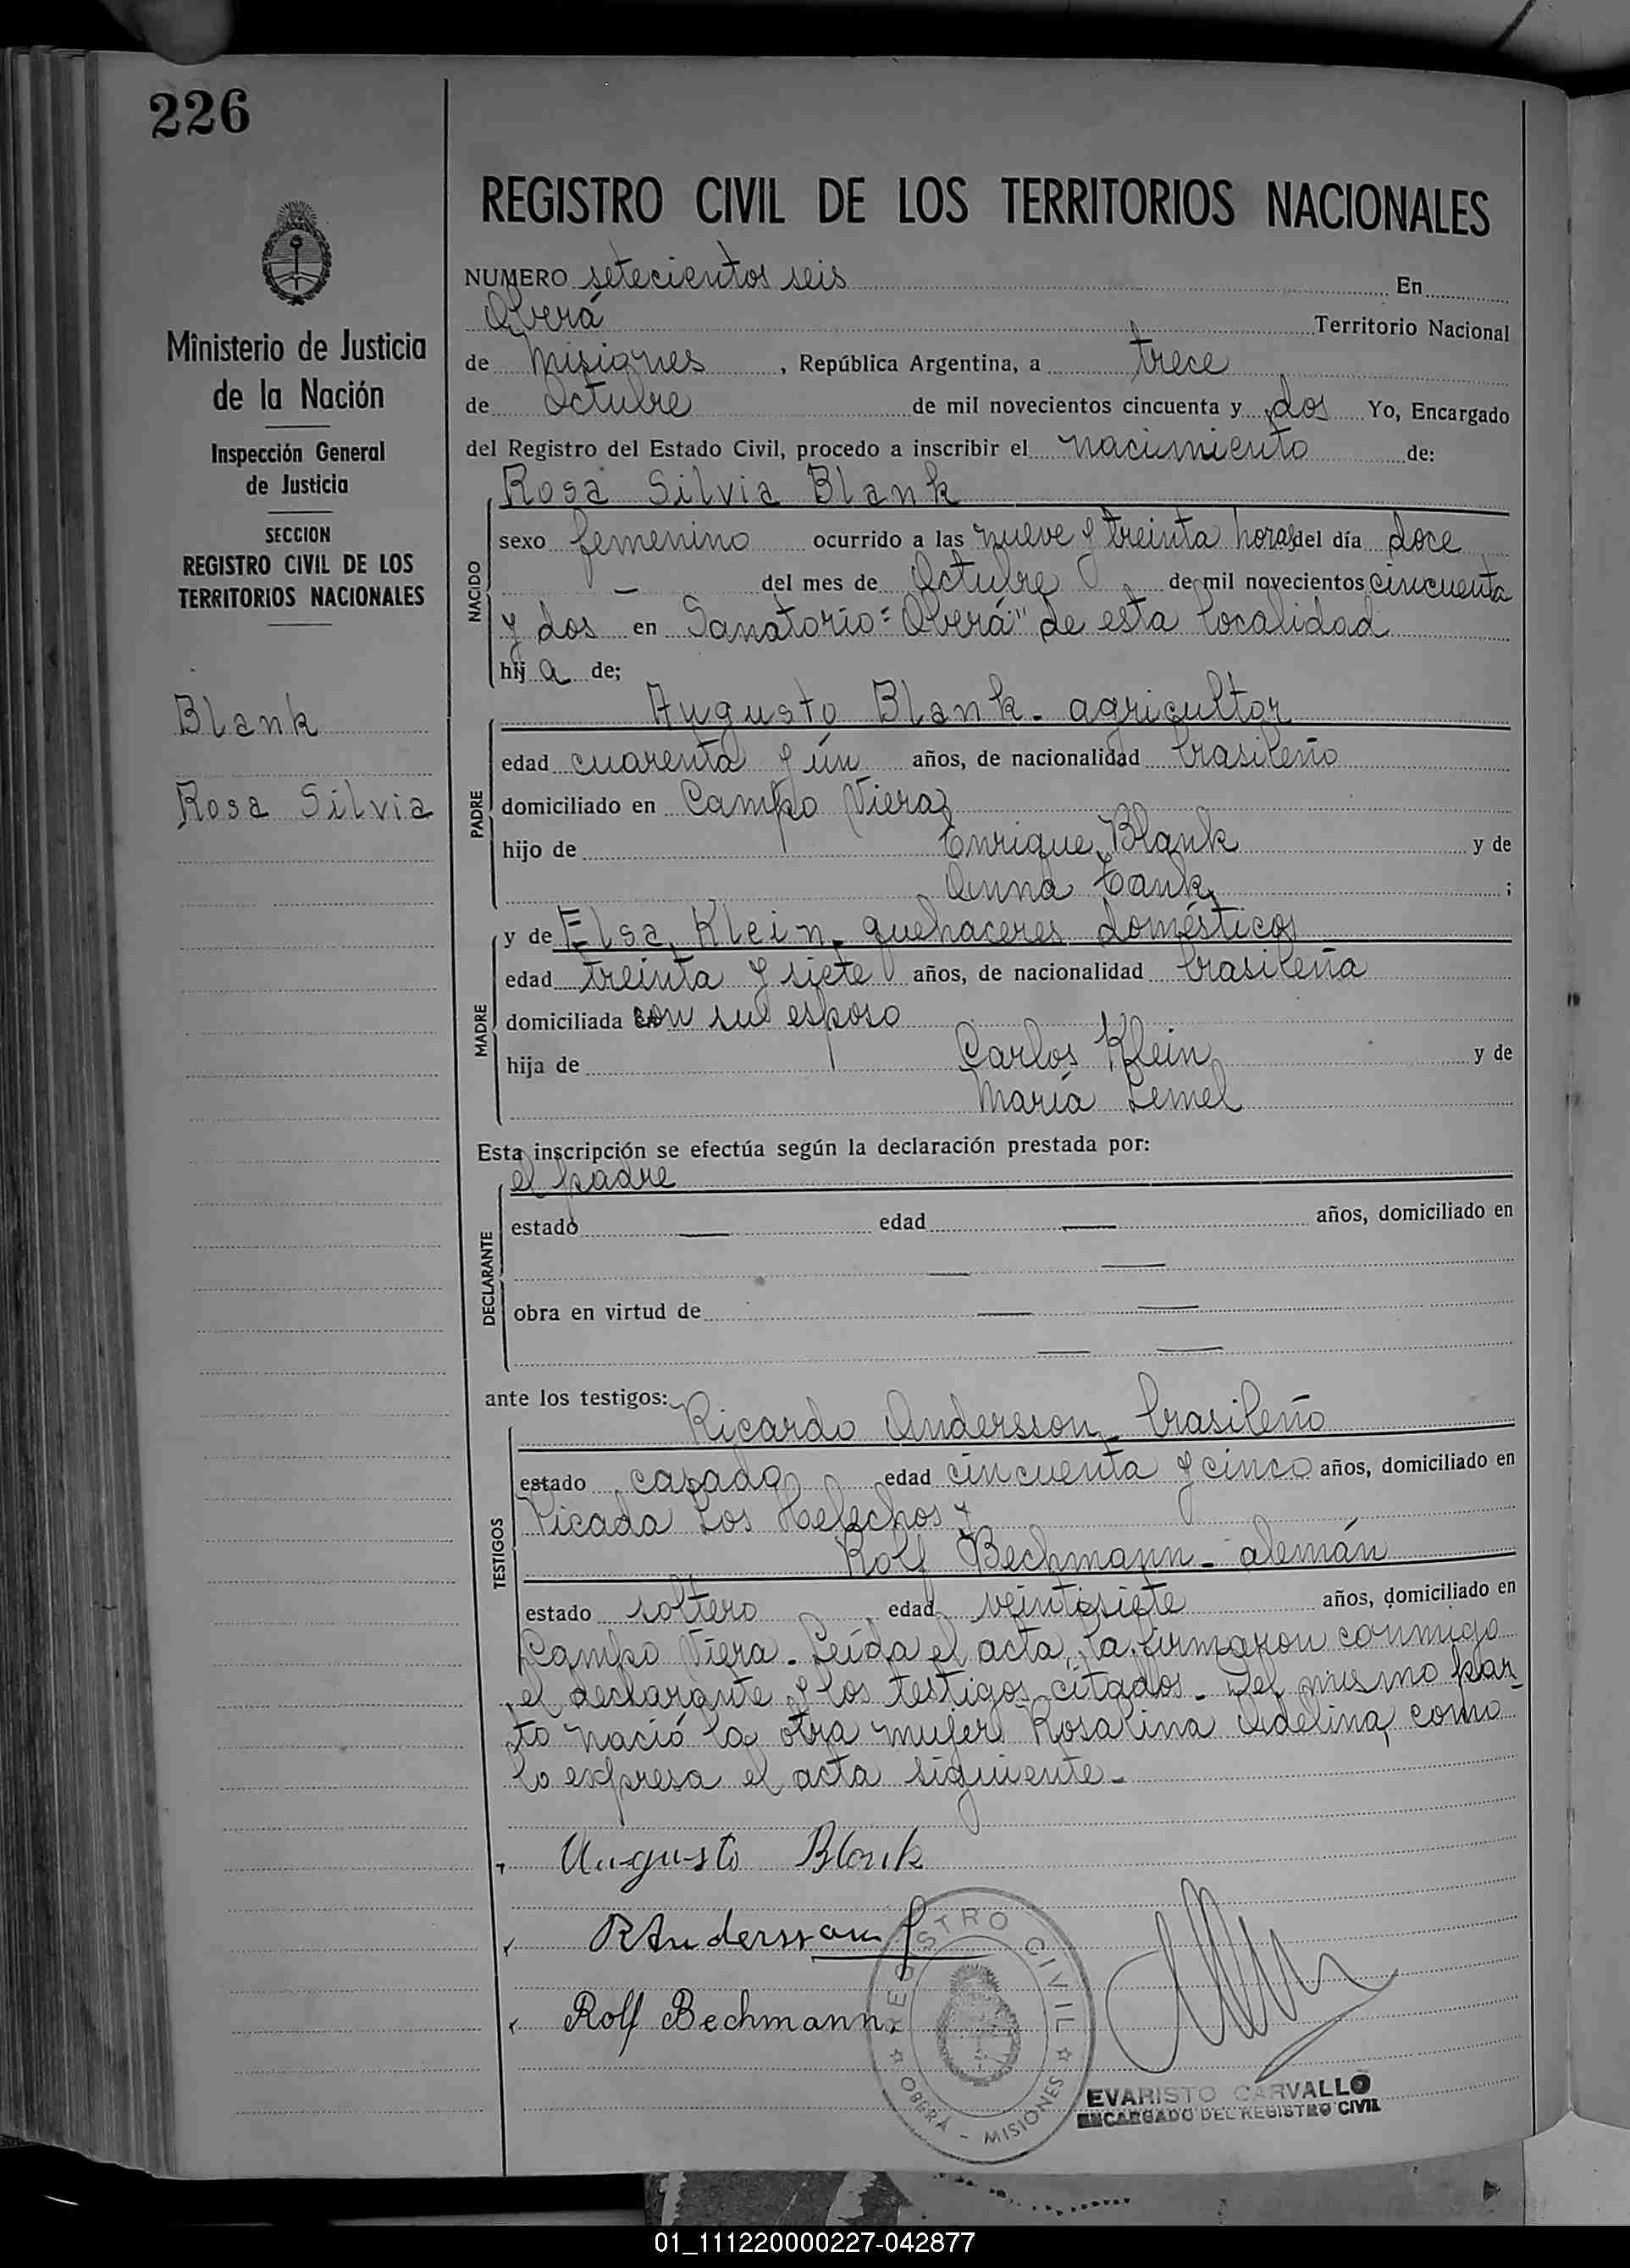 226
REGISTRO CIVIL DE LOS TERRITORIOS NACIONALES
Ministerio de Justicia
de la Nación
Inspección General
de Justicia
SECCION
REGISTRO CIVIL DE LOS
TERRITORIOS NACIONALES
Blank
Rosa Silvia
NUMERO setecientos seis En
Oberá Territorio Nacional
de Misiones, República Argentina, a trece
de Octubre de mil novecientos cincuenta y dos Yo, Encargado
del Registro del Estado Civil, procedo a inscribir el nacimiento de:
Rosa Silvia Blank
NACIDO
sexo femenino ocurrido a las nueve y treinta horas del día doce
— del mes de Octubre de mil novecientos cincuenta
y dos en Sanatorio "Oberá" de esta localidad
hij a de;
Augusto Blank - agricultor
PADRE
edad cuarenta y ún años, de nacionalidad brasileño
domiciliado en Campo Viera
hijo de Enrique Blank y de
Anna Tank;
y de Elsa Klein - quehaceres domésticos
MADRE
edad treinta y siete años, de nacionalidad brasileña
domiciliada con su esposo
hija de Carlos Klein y de
María Lemel
Esta inscripción se efectúa según la declaración prestada por:
el padre
DECLARANTE
estado — edad — años, domiciliado en
— —
obra en virtud de — —
— —
ante los testigos:
Ricardo Andersson - brasileño
TESTIGOS
estado casado edad cincuenta y cinco años, domiciliado en
Picada Los Helechos y
Rolf Bechmann - alemán
estado soltero edad veintisiete años, domiciliado en
Campo Viera - Leída el acta, la firmaron conmigo
el declarante y los testigos citados - Del mismo par-
to nació la otra mujer Rosalina Adelina, como
lo expresa el acta siguiente -
Augusto Blank
RAndersson
Rolf Bechmann.
REGISTRO CIVIL
OBERÁ - MISIONES
EVARISTO CARVALLO
ENCARGADO DEL REGISTRO CIVIL
01_111220000227-042877